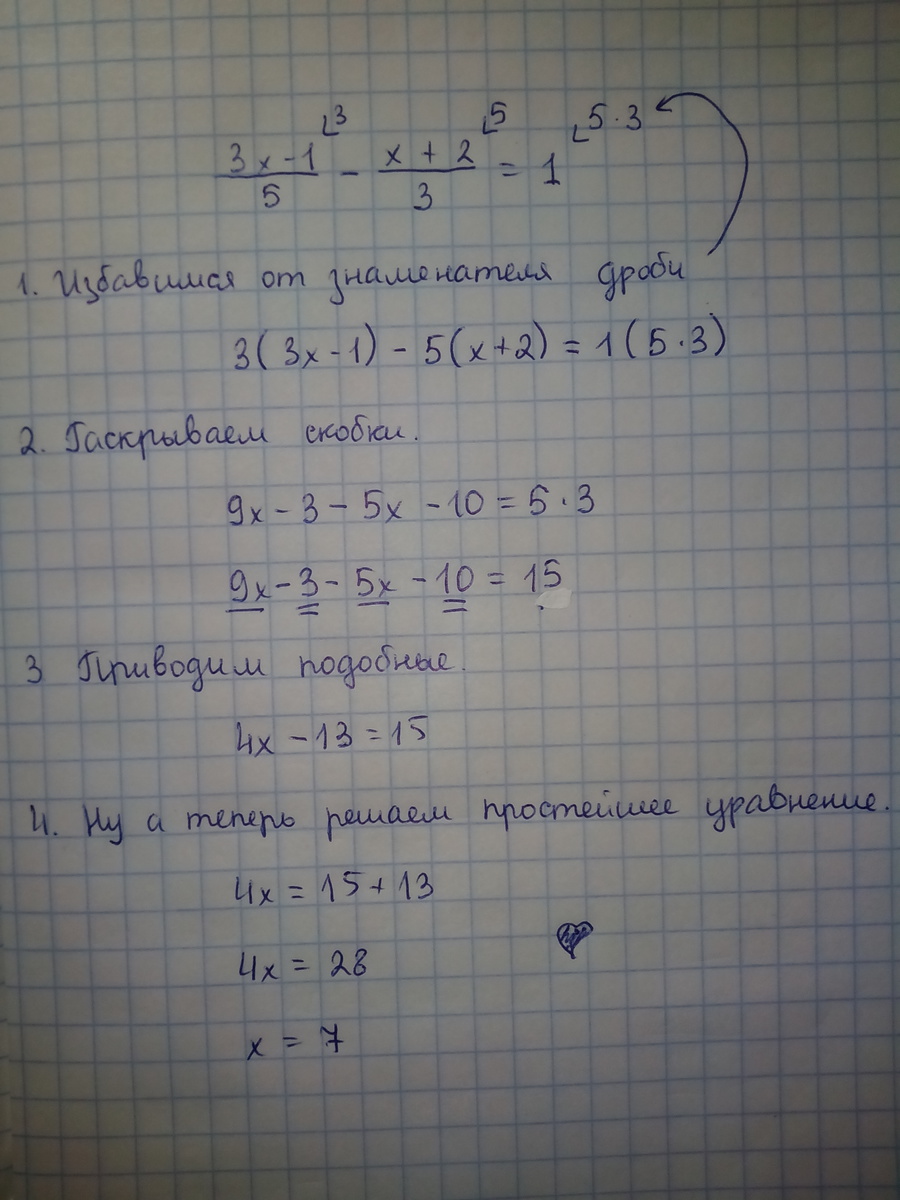 (3x-1)/5 ⌞3 - (x+2)/3 ⌞5 = 1 ⌞5·3
1. Избавимся от знаменателя дроби
3(3x-1)-5(x+2)=1(5·3)
2. Раскрываем скобки.
9x-3-5x-10=5·3
9x-3-5x-10=15
3 Приводим подобные.
4x-13=15
4. Ну а теперь решаем простейшее уравнение.
4x=15+13
4x=28
x=7